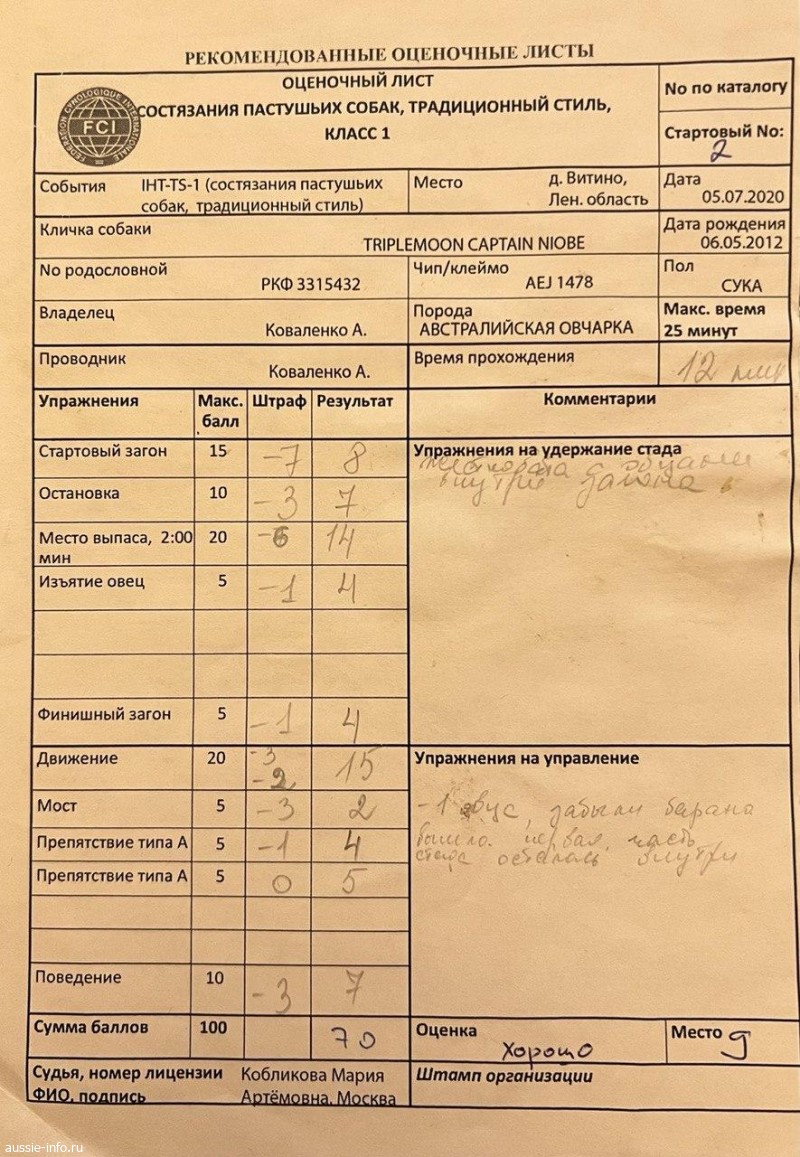 РЕКОМЕНДОВАННЫЕ ОЦЕНОЧНЫЕ ЛИСТЫ
ОЦЕНОЧНЫЙ ЛИСТ
СОСТЯЗАНИЯ ПАСТУШЬИХ СОБАК, ТРАДИЦИОННЫЙ СТИЛЬ,
КЛАСС 1
FEDERATION CYNOLOGIQUE INTERNATIONALE
FCI
No по каталогу
Стартовый No:
2
События IHT-TS-1 (состязания пастушьих
собак, традиционный стиль)
Место д. Витино,
Лен. область
Дата
05.07.2020
Кличка собаки
TRIPLEMOON CAPTAIN NIOBE
Дата рождения
06.05.2012
No родословной
РКФ 3315432
Чип/клеймо
AEJ 1478
Пол
СУКА
Владелец
Коваленко А.
Порода
АВСТРАЛИЙСКАЯ ОВЧАРКА
Макс. время
25 минут
Проводник
Коваленко А.
Время прохождения
12 мин
Упражнения Макс. балл Штраф Результат Комментарии
Стартовый загон 15 -7 8
Остановка 10 -3 7
Место выпаса, 2:00 мин 20 -6 14
Изъятие овец 5 -1 4
Финишный загон 5 -1 4
Упражнения на удержание стада
внутри загона
Движение 20 -3 -2 15
Мост 5 -3 2
Препятствие типа А 5 -1 4
Препятствие типа А 5 0 5
Поведение 10 -3 7
Упражнения на управление
-1 забыли барана
первая часть
осталась внутри
Сумма баллов 100 70
Оценка Хорошо
Место 9
Судья, номер лицензии Кобликова Мария
ФИО, подпись Артёмовна, Москва
Штамп организации
aussie-info.ru